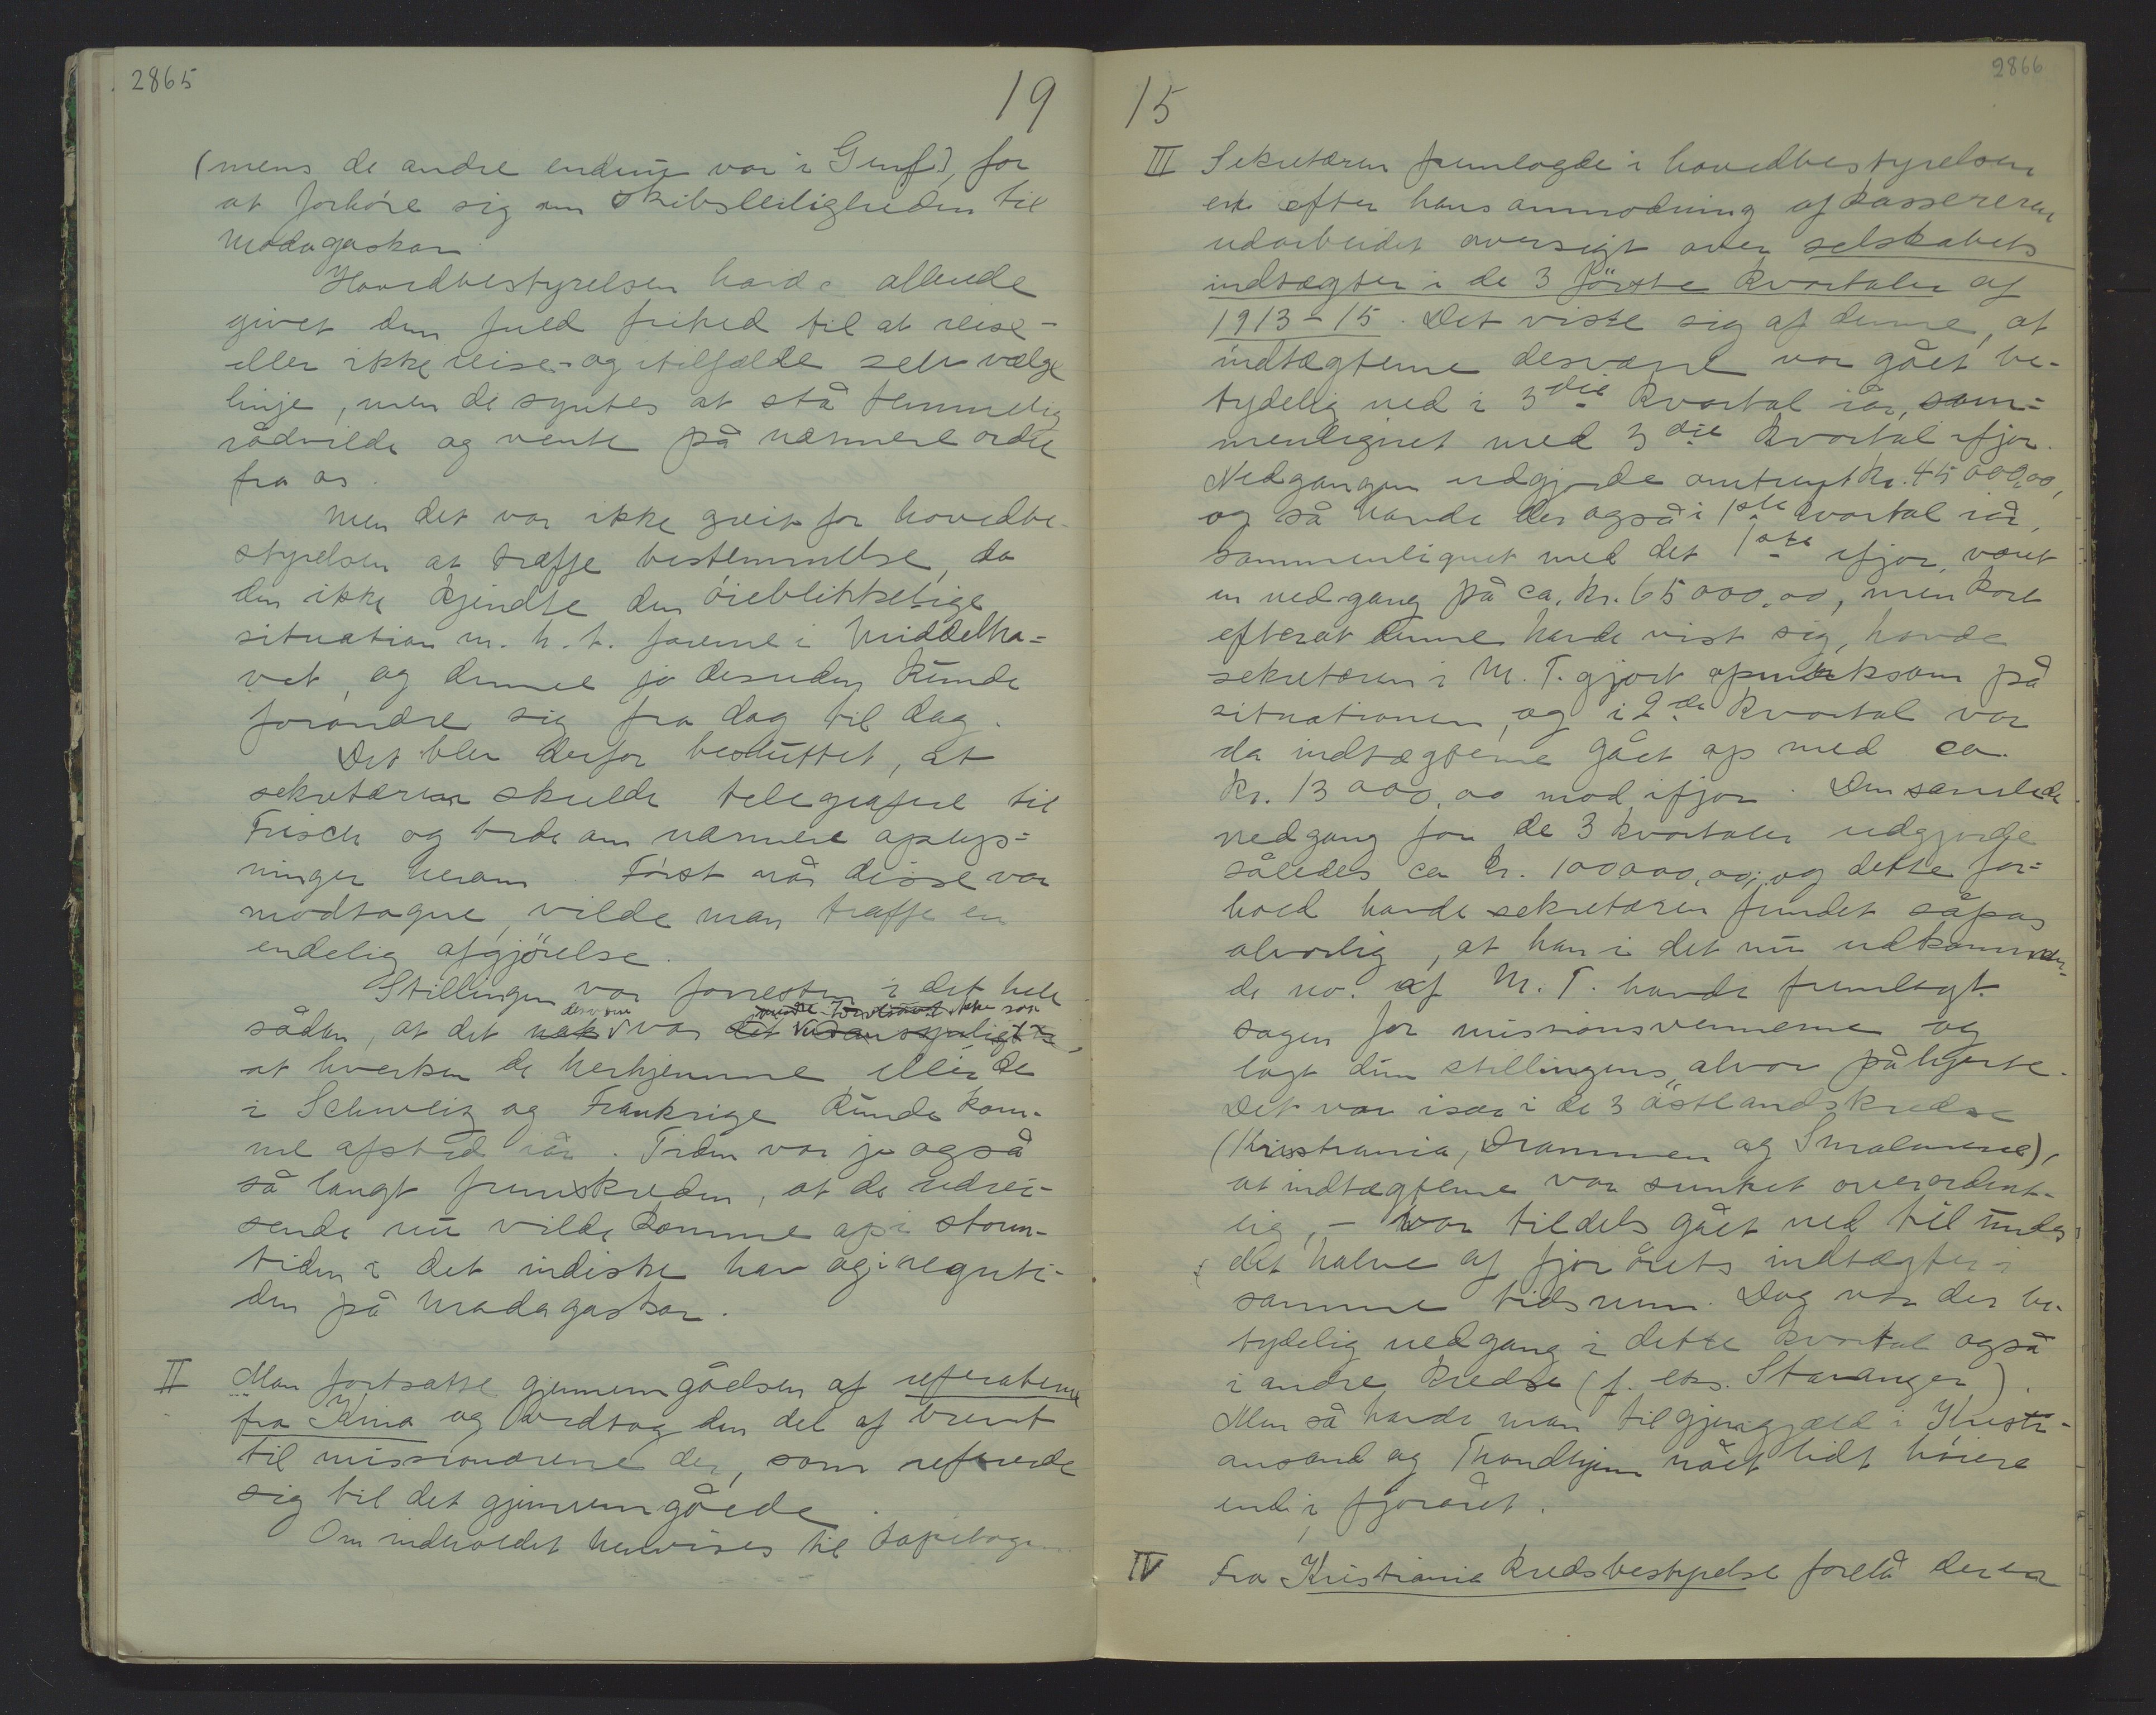 2865
19
(mens de andre endnu var i Genf), for
at forhöre sig om skibsleiligheden til
Madagaskar
Hovedbestyrelsen havde allerede
givet dem fuld frihed til at reise -
eller ikke reise - og itilfælde selv vælge
linje, men de syntes at stå temmelig
rådvilde og vente på nærmere ordre
fra os.
Men det var ikke greit for hovedbe-
styrelsen at træffe bestemmelse, da
den ikke kjendte den öieblikkelige
situation m. h. t. farerne i Middelha=
vet, og denne jo desuden kunde
forandre sig fra dag til dag.
Det blev derfor besluttet, at
sekretæren skulde telegrafere til
Frisch og bede om nærmere oplys=
ninger herom. Först når disse var
modtagne, vilde man træffe en
endelig afgjörelse.
Stillingen var forresten i det hele
desværre ikke så
sådan, at det nok var det
at hverken de herhjemme eller de
i Schweiz og Frankrige kunde kom-
me afsted iår. Tiden var jo også
så langt fremskreden, at de udrei-
sende nu vilde komme op i storm-
tiden i det indiske hav og i regnti-
den på Madagaskar.
II Man fortsatte gjennemgåelsen af referaterne
fra Kina og vedtog den del af brevet
til missionærerne der, som refererede
sig til det gjennemgåede.
Om indholdet henvises til kopibogen
2866
15
III Sekretæren fremlagde i hovedbestyrelsen
en efter hans anmodning af kassereren
udarbeidet oversigt over selskabets
indtægter i de 3 förste kvartaler af
1913-15. Det viste sig af denne, at
indtægterne desværre var gået be-
tydelig ned i 3die kvartal iår, sam=
menlignet med 3die kvartal ifjor.
Nedgangen udgjorde omtrent kr. 45 000,00,
og så havde der også i 1ste kvartal iår,
sammenlignet med det 1ste ifjor, været
en nedgang på ca. kr. 65 000,00, men kort
efterat denne havde vist sig, havde
sekretæren i M. T. gjort opmerksom på
situationen, og i 2de kvartal var
da indtægterne gået op med ca.
kr. 13 000,00 mod ifjor. Den samlede
nedgang for de 3 kvartaler udgjorde
således ca kr. 100 000,00; og dette for=
hold havde sekretæren fundet såpas
alvorlig, at han i det nu udkommen-
de no. af M. T. havde fremlagt
sagen for missionsvennerne og
lagt dem stillingens alvor på hjerte.
Det var især i de 3 östlandskredse
(Kristiania, Drammen og Smalenene),
at indtægterne var sunket overordent-
lig, - var tildels gået ned til under
det halve af fjorårets indtægter i
samme tidsrum. Dog var der be-
tydelig nedgang i dette kvartal også
i andre kredse (f. eks. Stavanger).
Men så havde man til gjengjæld i Kristi-
ansand og Trondhjem nået lidt höiere
end i fjoråret.
IV Fra Kristiania kredsbestyrelse forelå der en